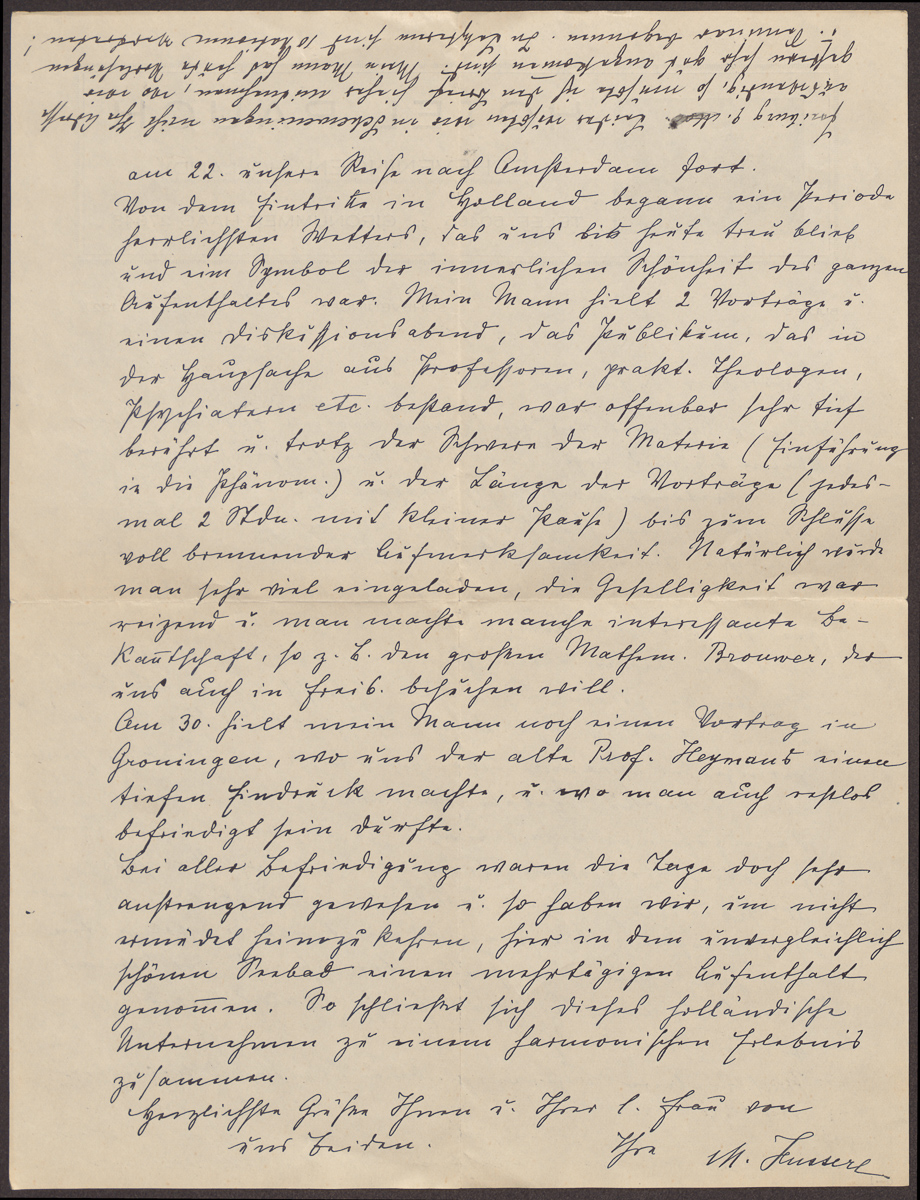 am 22. unsere Reise nach Amsterdam fort.
Von dem Eintritte in Holland begann ein Periode
herrlichsten Wetters, das uns bis heute treu blieb
und ein Symbol der innerlichen Schönheit des ganzen
Aufenthaltes war. Mein Mann hielt 2 Vorträge u.
einen Diskussionsabend, das Publikum, das in
der Haupsache aus Professoren, prakt. Theologen,
Psychiatern etc. bestand, war offenbar sehr tief
berührt u. trotz der Schwere der Materie (Einführung
in die Phänom.) u. der Länge der Vorträge (jedes-
mal 2 Stdn. mit kleiner Pause) bis zum Schlusse
voll brennender Aufmerksamkeit. Natürlich wurde
man sehr viel eingeladen, die Geselligkeit war
reizend u. man machte manche interessante Be-
kanntschaft, so z. B. den großen Mathem. Brouwer, der
uns auch in Freib. besuchen will.
Am 30. hielt mein Mann noch einen Vortrag in
Groningen, wo uns der alte Prof. Heymans einen
tiefen Eindruck machte, u. wo man auch restlos
befriedigt sein durfte.
Bei aller Befriedigung waren die Tage doch sehr
anstrengend gewesen u. so haben wir, um nicht
ermüdet heimzukehren, hier in dem unvergleichlich
schönen Seebad einen mehrtägigen Aufenthalt
genommen. So schließt sich dieses holländische
Unternehmen zu einem harmonischen Erlebnis
zusammen.
Herzlichste Grüße Ihnen u. Ihrer l. Frau von
uns Beiden. Ihre M. Husserl
Freiburg 9. Mai. Leider wußten wir in Scheveningen nicht Ihre Adresse
auswendig, so mußte ich den Brief hieher mitnehmen, wo wir
gestern sehr gut angekommen sind. Mein Mann hat heute Vorlesungen
u. Seminar begonnen. In letzterem sind 10 Nationen vertreten!